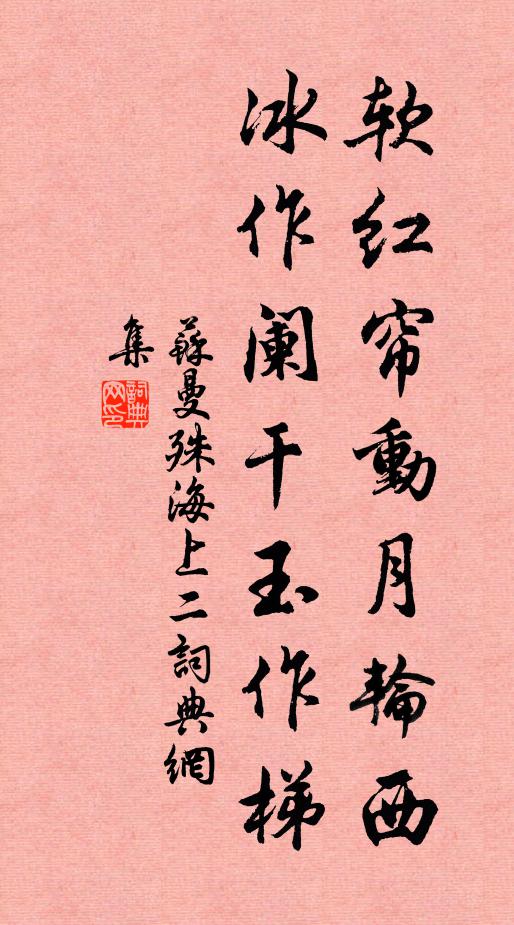 软红帘動月輪西
冰作阑干玉作梯
蘇曼殊海上二詞典網
集
詞典
网印